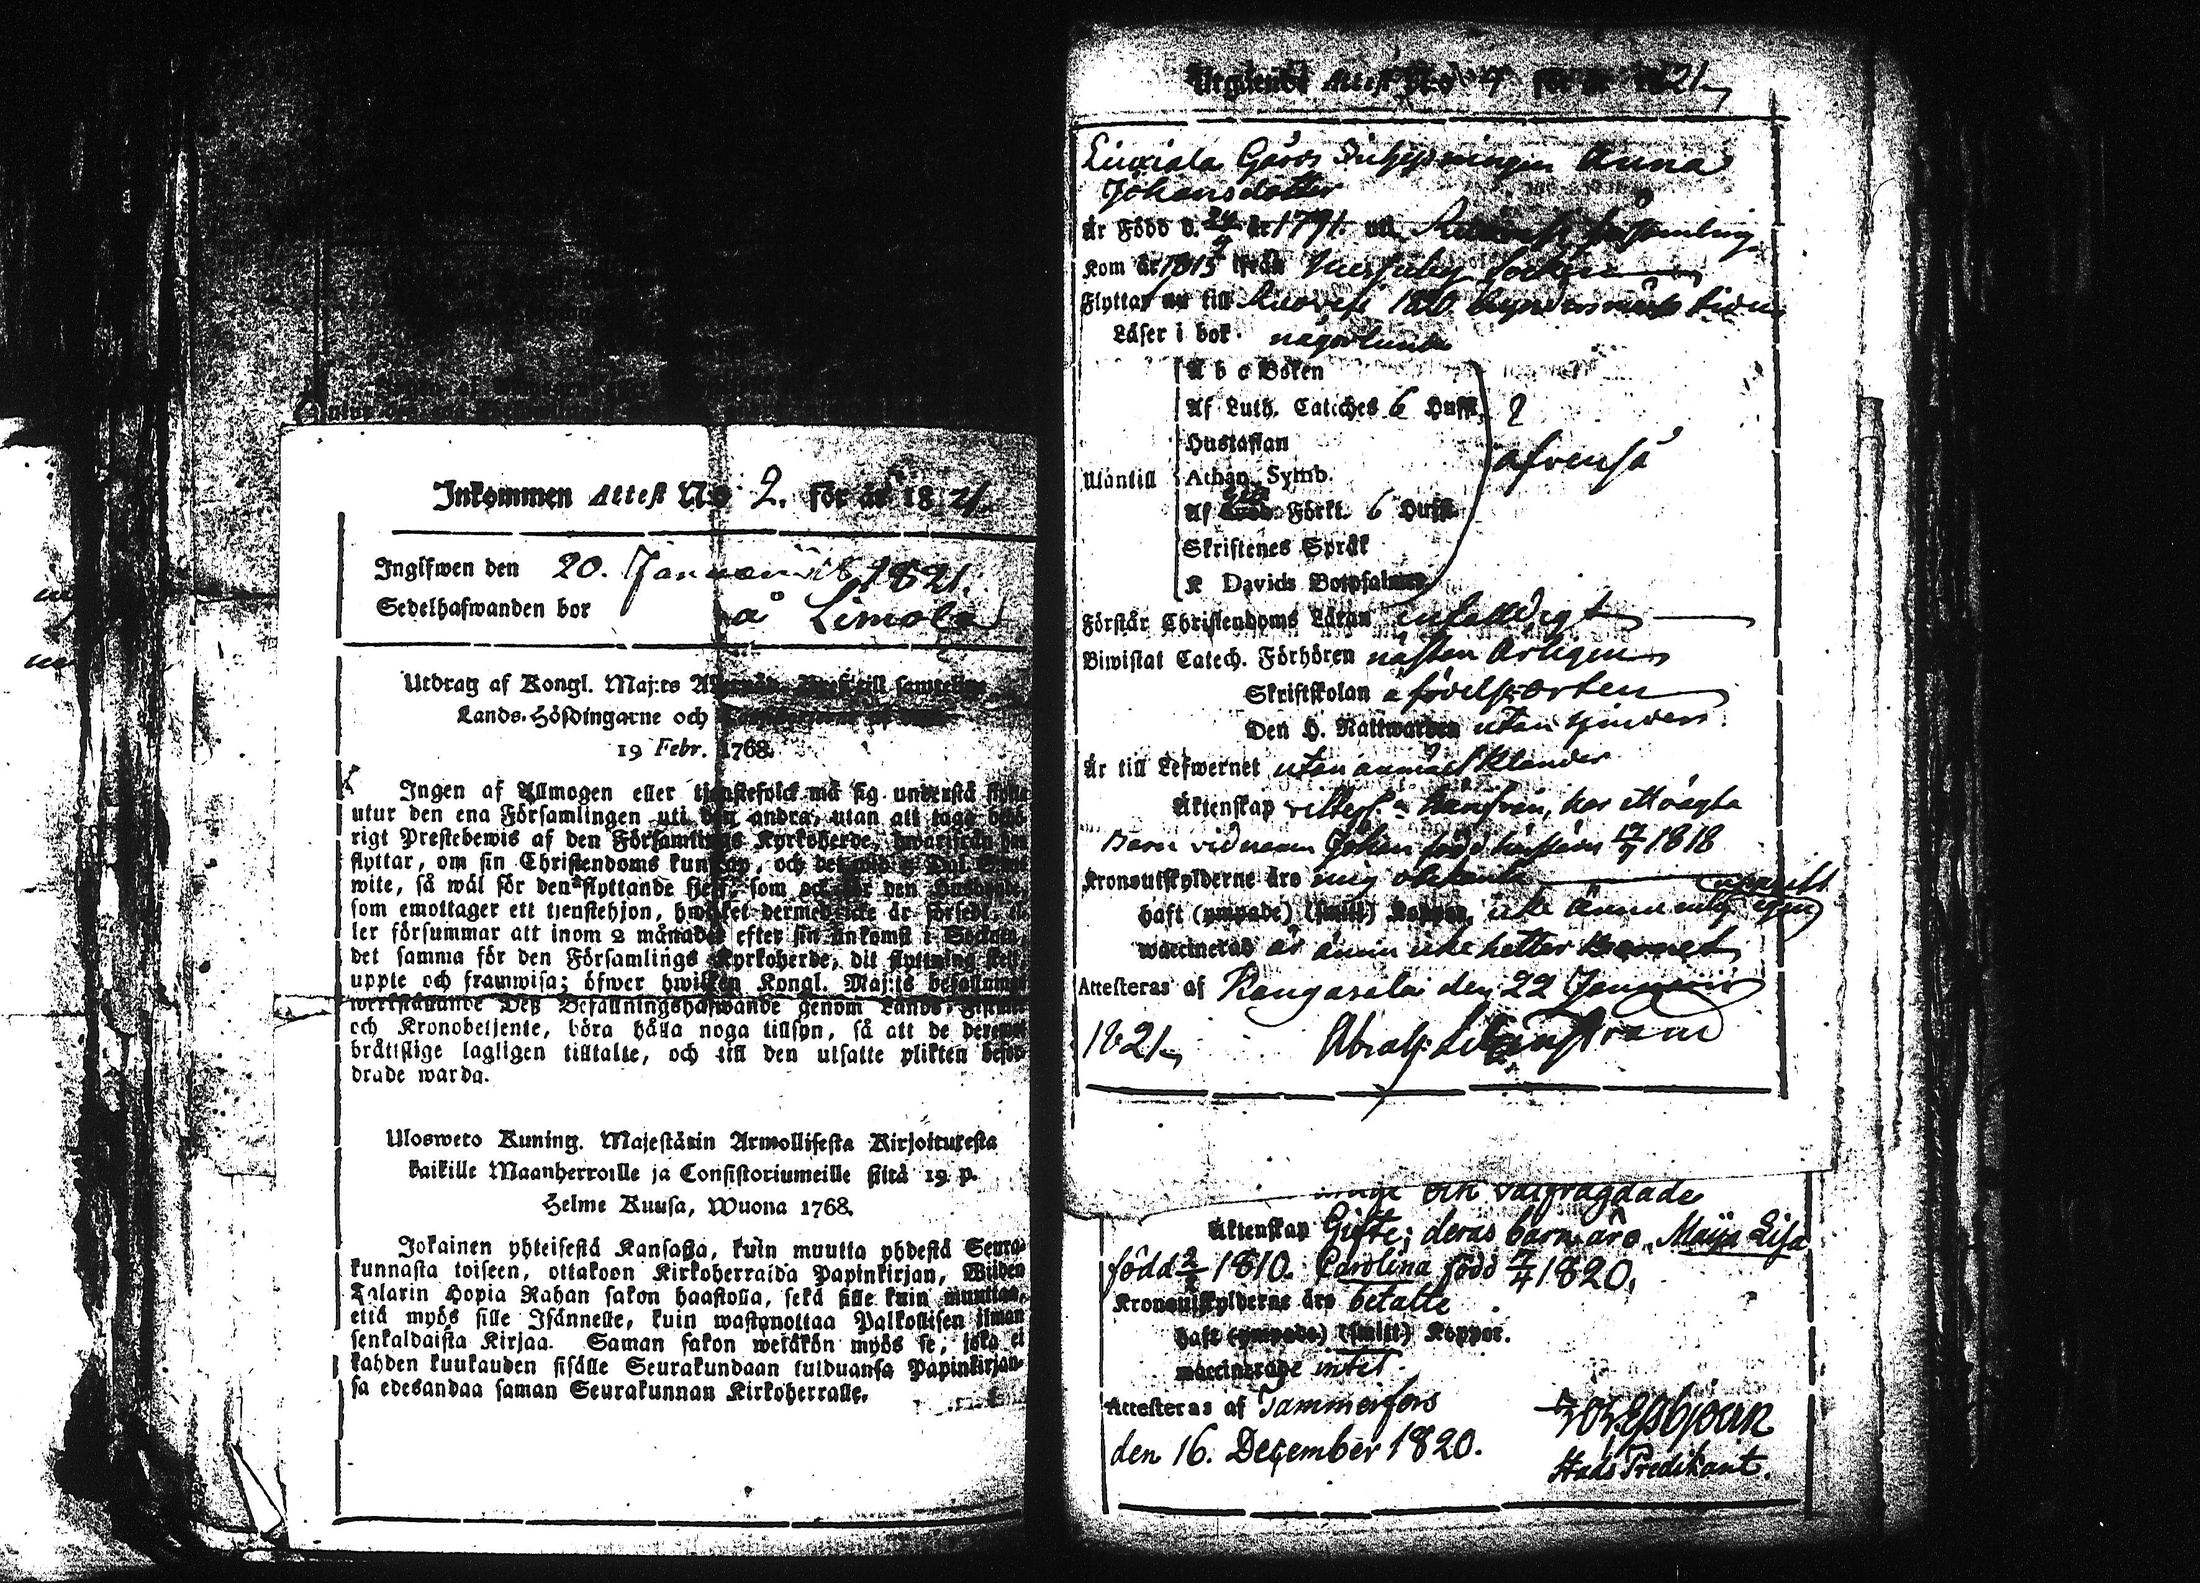 Inkommen Attest N:o 2. för år 1821.
Inglfwen den 20. Januarii 1821.
Sedelhafwanden bor å Limola
Utdrag af Kongl. Maj:ts till samtelige
Lands-Höfdingarne och
19 Febr. 1768.
Ingen af Allmogen eller tjenstefolck må sig understå flytta
utur den ena Församlingen uti den andra, utan att taga behö
rigt Prestebewis af den Församlings Kyrkoherde, hwarifrån han
flyttar, om sin Christendoms kunskap, och
wite, så wäl för den flyttande sjelf, som och för den Husbonde,
som emottager ett tjenstehjon, hwilket dermed icke är försedt, el
ler försummar att inom 2 månader efter sin ankomst i Socknen,
det samma för den Församlings Kyrkoherde, dit flyttning skett,
uppte och framwisa; öfwer hwilken Kongl. Maj:ts befallnings
werkställande Deß Befallningshafwande genom Lands-Fiscaler
och Kronobetjente, böra hålla noga tillsyn, så att de deremot
bråttslige lagligen tilltalte, och till den utsatte plikten befor
drade warda.
Ulosweto Kuning. Majestätin Armollisesta Kirjoituxesta
kaikille Maanherroille ja Consistoriumeille siitä 19 p.
Helme Kuusa, Wuona 1768.
Jokainen yhteisestä Kansasta, kuin muutta yhdestä Seura-
kunnasta toiseen, ottakoon Kirkoherralda Papinkirjan, Wijden
Talarin Hopia Rahan sakon haastolla, sekä sille kuin muuttaa,
että myös sille Isännelle, kuin wastanottaa Palkollisen ilman
senkaldaista Kirjaa. Saman sakon wetäkön myös se, joka ei
kahden kuukauden sisälle Seurakundaan tulduansa Papinkirjan-
sa edesandaa saman Seurakunnan Kirkoherralle.
Utgående Attest N:o 4 för år 1821
Liuxiala Gårds Inhysningen Anna
Johansdotter
Är Född d. 24/9 år 1791 uti församling
Kom år 1815 ifrån socken
Flyttar nu till Ruovesi 1820 kyndersmäss tiden
Läser i bok någorlunda
Utantill
A b c Boken
Af Luth. Cateches 6 Huff.
Hustaflan
Athan. Symb.
Af Förkl. 6 Huff.
Skriftenes Språk
K Davids Botpsalmer
äfvenså
Förstår Christendoms Läran enfaldigt
Biwistat Catech. Förhören nästan årligen
Skriftskolan å födelseorten
Den H. Nattwarden utan hinder
Är till Lefwernet utan anmäldt klander
Äktenskap har ett oägta
Barn vid namn Johan född 17/7 1818
Kronoutskylderne äro mig obekante
haft (ympade) (smitt) Koppor, icke ännu mig
waccinerad är ännu icke heller Barnet
Attesteras af Kangasala den 22 Januarii
1821 Abrah: Lilljestrand
och välfrägdade
Äktenskap Gifte; deras barn äro, Maija Lisa
född 1810. Carolina född 7/4 1820.
Kronoutskylderne äro betalte
haft (ympade) (smitt) Koppor.
waccinerade intet.
Attesteras af Tammerfors
den 16. December 1820.
Stads Predikant.